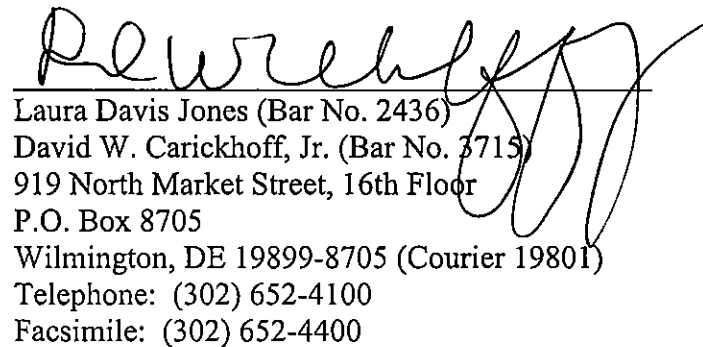 Laura Davis Jones (Bar No. 2436)
David W. Carickhoff, Jr. (Bar No. 3715)
919 North Market Street, 16th Floor
P.O. Box 8705
Wilmington, DE 19899-8705 (Courier 19801)
Telephone: (302) 652-4100
Facsimile: (302) 652-4400